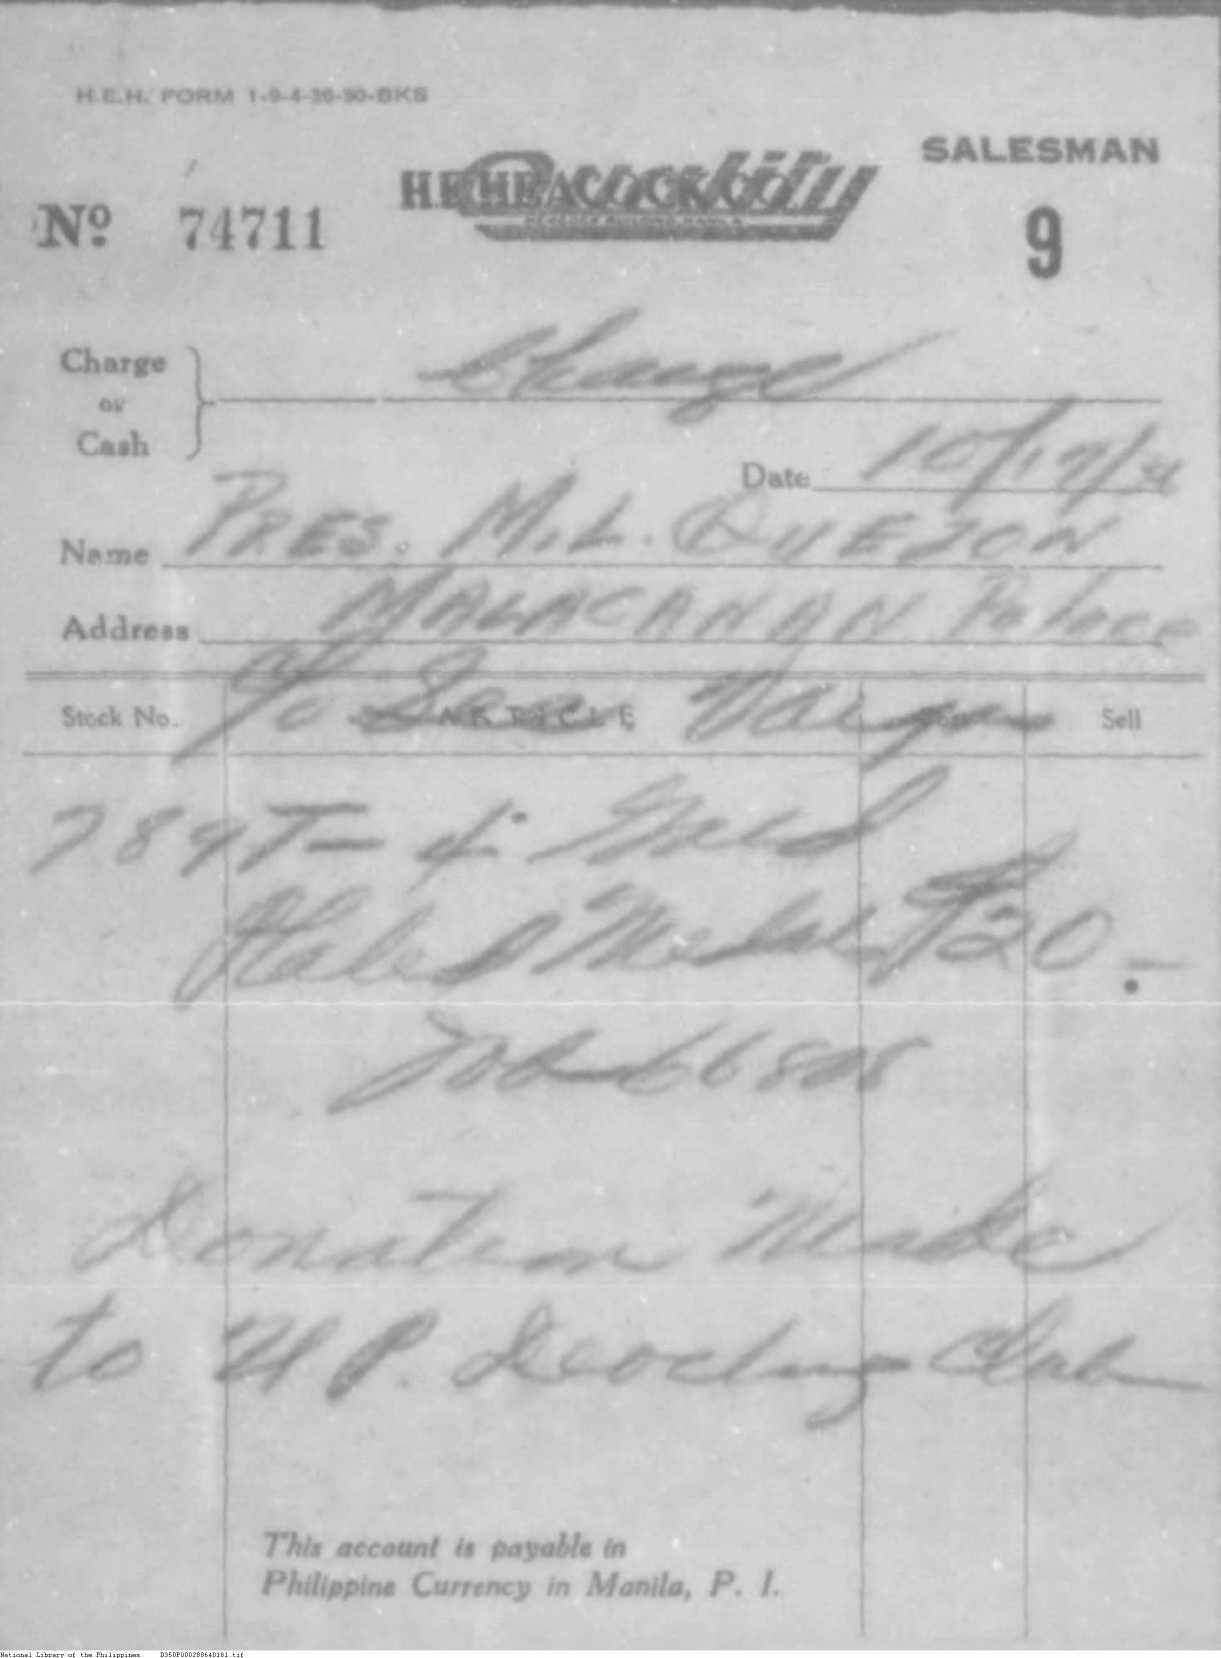 H.E.H. FORM 1-9-4-36-50-BKS
SALESMAN
Nº 74711
H.E. HEACOCK CO.
9
Charge
or
Cash
Charge
Date 10/17/36
Name PRES. M.L. QUEZON
Address MALACANAN Palace
c/o Sec Vargas
Stock No. ARTICLE Cost Sell
7897T - 4 Gold
Plated Medals ₱20.-
Job 66808
Donation Made
to U P. Club
This account is payable in
Philippine Currency in Manila, P. I.
National Library of the Philippines D350P000288640181.tif